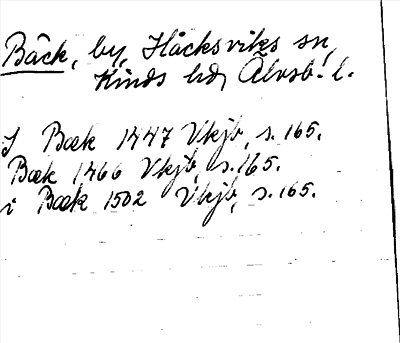 Bäck, by, Håcksviks sn,
Kinds hd, Älvsb. l.
I Bæk 1447 Vkjb, s. 165.
Bæk 1466 Vkjb, s. 165.
i Bæk 1502 Vkjb, s. 165.